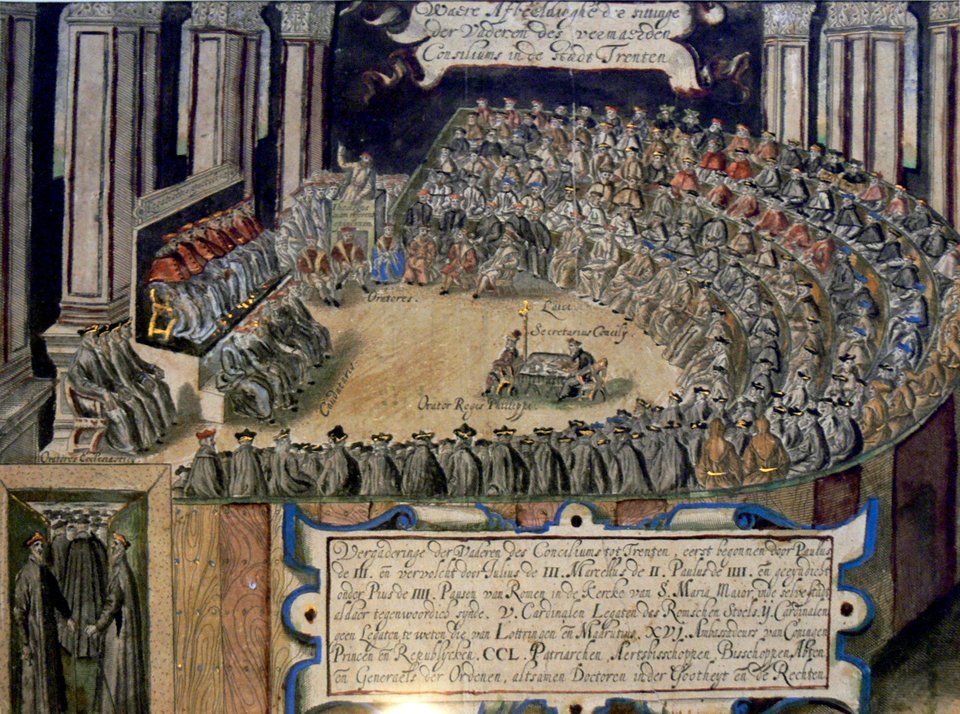 Waere Afbeeldinghe de sittinge
der Vaderen des vermaerden
Consiliums in de Stadt Trenten
Oratores.
Laici
Secretarius Concilÿ
Orator Regis Philippi
Oratores Ecclesiastici
Vergaderinge der Vaderen des Conciliums tot Trenten, eerst begonnen door Paulus
de III. en vervolcht door Iulius de III. Marcellus de II. Paulus de IIII. en geeyndicht
onder Pius de IIII. Pausen van Romen in de Kercke van S. Maria Maior inde selve stadt
aldaer tegenwoordich synde. V. Cardinalen Legaten des Romschen Stoels. ij. Cardinalen
geen Legaten te weten die van Lottringen en Madrutius. XVI. Ambassadeurs van Coningen
Princen en Republycken. CCL. Patriarchen, Aertsbisschoppen, Bisschoppen, Abten
en Generaels der Ordenen, altsamen Doctoren inder Gootheyt en de Rechten.